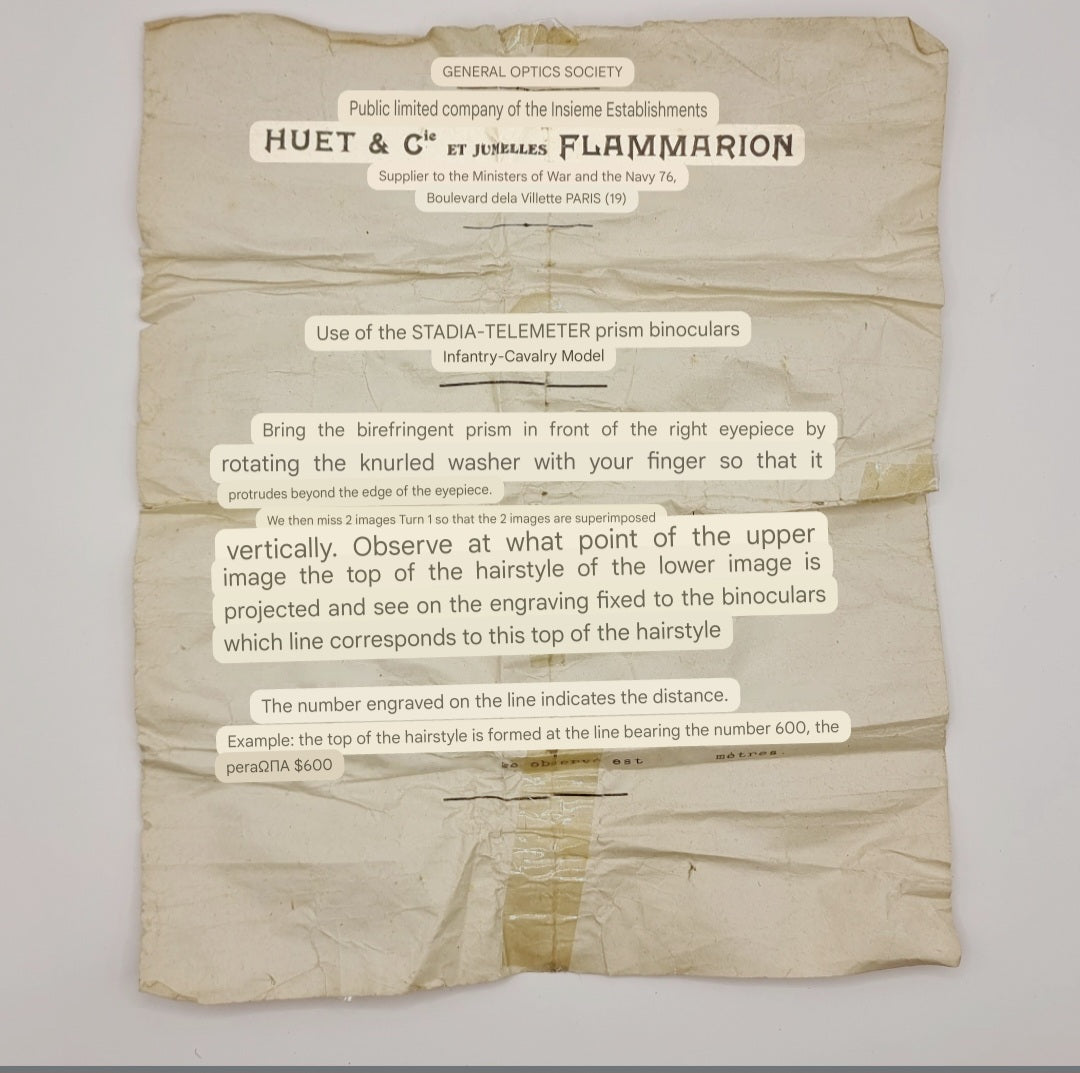 GENERAL OPTICS SOCIETY
Public limited company of the Insieme Establishments
HUET & Cie ET JUMELLES FLAMMARION
Supplier to the Ministers of War and the Navy 76,
Boulevard dela Villette PARIS (19)
Use of the STADIA-TELEMETER prism binoculars
Infantry-Cavalry Model
Bring the birefringent prism in front of the right eyepiece by
rotating the knurled washer with your finger so that it
protrudes beyond the edge of the eyepiece.
We then miss 2 images Turn 1 so that the 2 images are superimposed
vertically. Observe at what point of the upper
image the top of the hairstyle of the lower image is
projected and see on the engraving fixed to the binoculars
which line corresponds to this top of the hairstyle
The number engraved on the line indicates the distance.
Example: the top of the hairstyle is formed at the line bearing the number 600, the
peraΩΠA $600 observé est mètres.